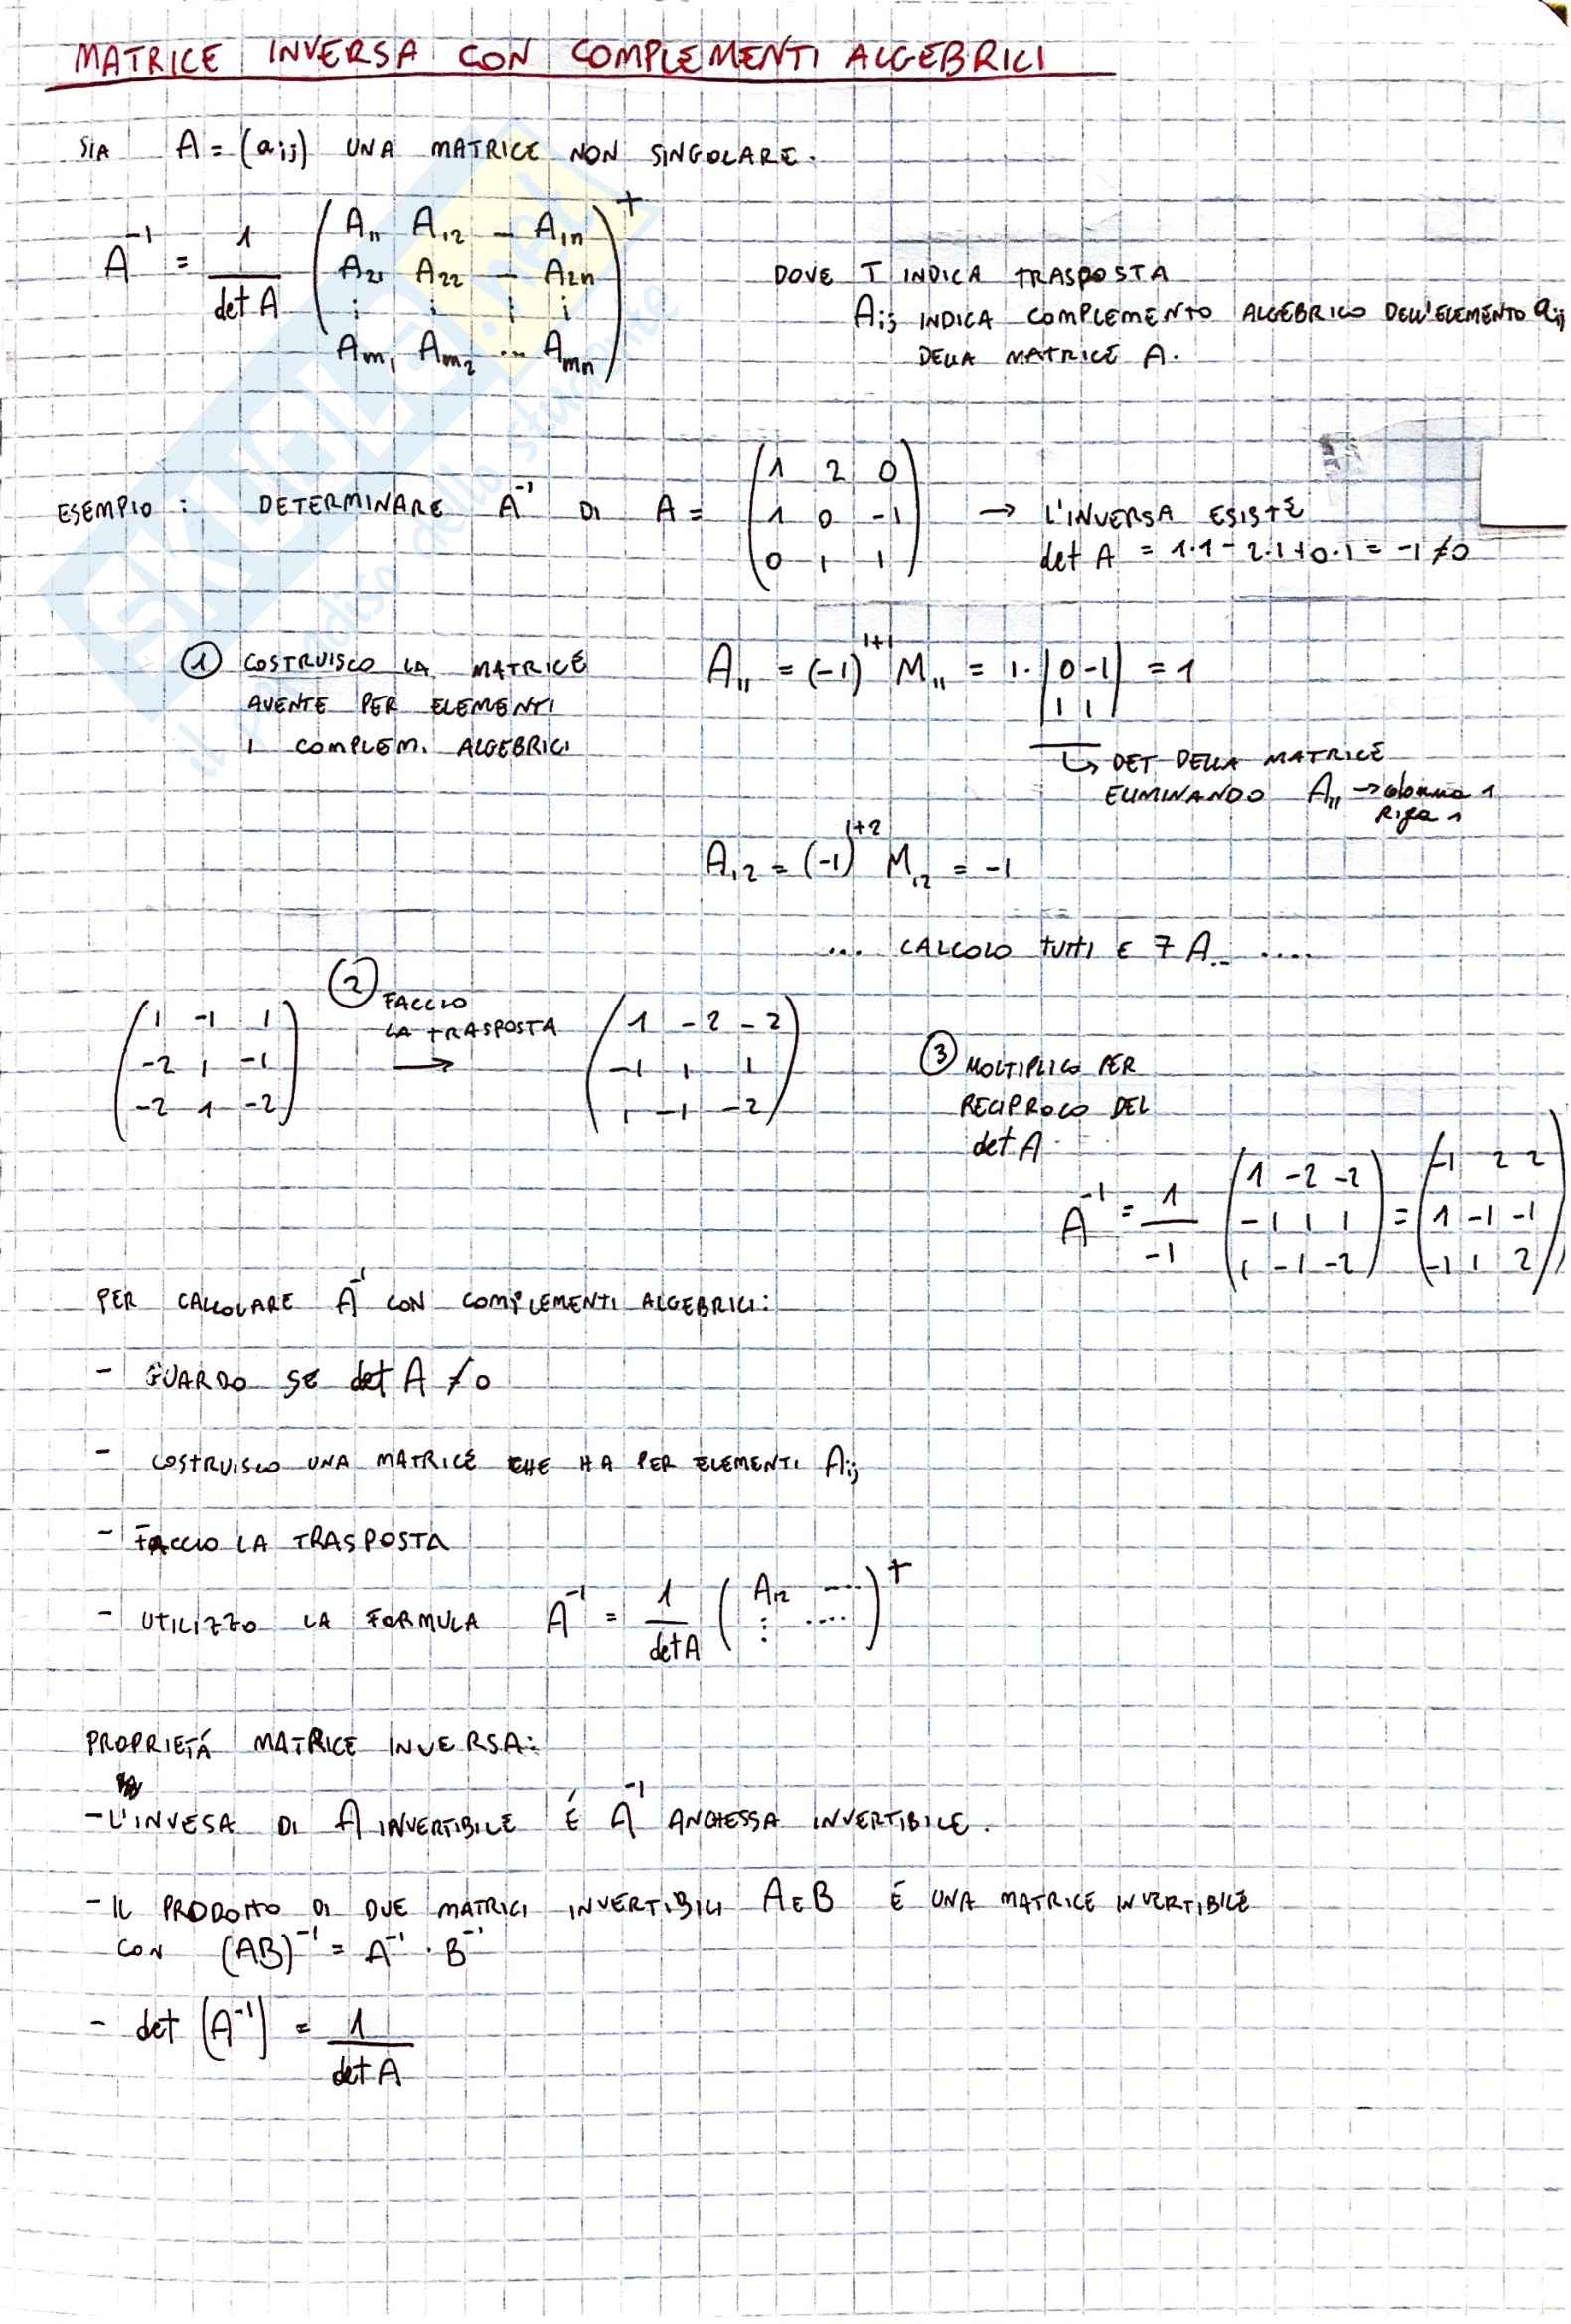 MATRICE INVERSA CON COMPLEMENTI ALGEBRICI
SIA A = (aij) UNA MATRICE NON SINGOLARE.
A⁻¹ = 1/det A (A11 A12 – A1n
A21 A22 – A2n
⋮ ⋮ ⋮ ⋮
Am1 Am2 ... Amn)ᵀ
DOVE T INDICA TRASPOSTA
Aij INDICA COMPLEMENTO ALGEBRICO DELL'ELEMENTO aij
DELLA MATRICE A.
ESEMPIO : DETERMINARE A⁻¹ DI A = (1 2 0
1 0 -1
0 1 1)
→ L'INVERSA ESISTE
det A = 1·1 - 2·1 + 0·1 = -1 ≠ 0
① COSTRUISCO LA MATRICE
AVENTE PER ELEMENTI
I COMPLEM. ALGEBRICI
A11 = (-1)¹⁺¹ M11 = 1· |0 -1
1 1| = 1
↳ DET DELLA MATRICE
ELIMINANDO A11 → colonna 1
Riga 1
A12 = (-1)¹⁺² M12 = -1
... CALCOLO TUTTI E 7 A.. ....
(1 -1 1
-2 1 -1
-2 1 -2)
② FACCIO
LA TRASPOSTA
→
(1 -2 -2
-1 1 1
1 -1 -2)
③ MOLTIPLICO PER
RECIPROCO DEL
det A
A⁻¹ = 1/-1 (1 -2 -2
-1 1 1
1 -1 -2) = (-1 2 2
1 -1 -1
-1 1 2)
PER CALCOLARE A⁻¹ CON COMPLEMENTI ALGEBRICI:
- GUARDO SE det A ≠ 0
- COSTRUISCO UNA MATRICE CHE HA PER ELEMENTI Aij
- FACCIO LA TRASPOSTA
- UTILIZZO LA FORMULA A⁻¹ = 1/det A (A12 ....
⋮ ....)ᵀ
PROPRIETÁ MATRICE INVERSA:
- L'INVESA DI A INVERTIBILE É A⁻¹ ANCHESSA INVERTIBILE.
- IL PRODOTTO DI DUE MATRICI INVERTIBILI A E B É UNA MATRICE INVERTIBILE
CON (AB)⁻¹ = A⁻¹ · B⁻¹
- det (A⁻¹) = 1/det A
SKUOLA.net
il paradiso dello studente